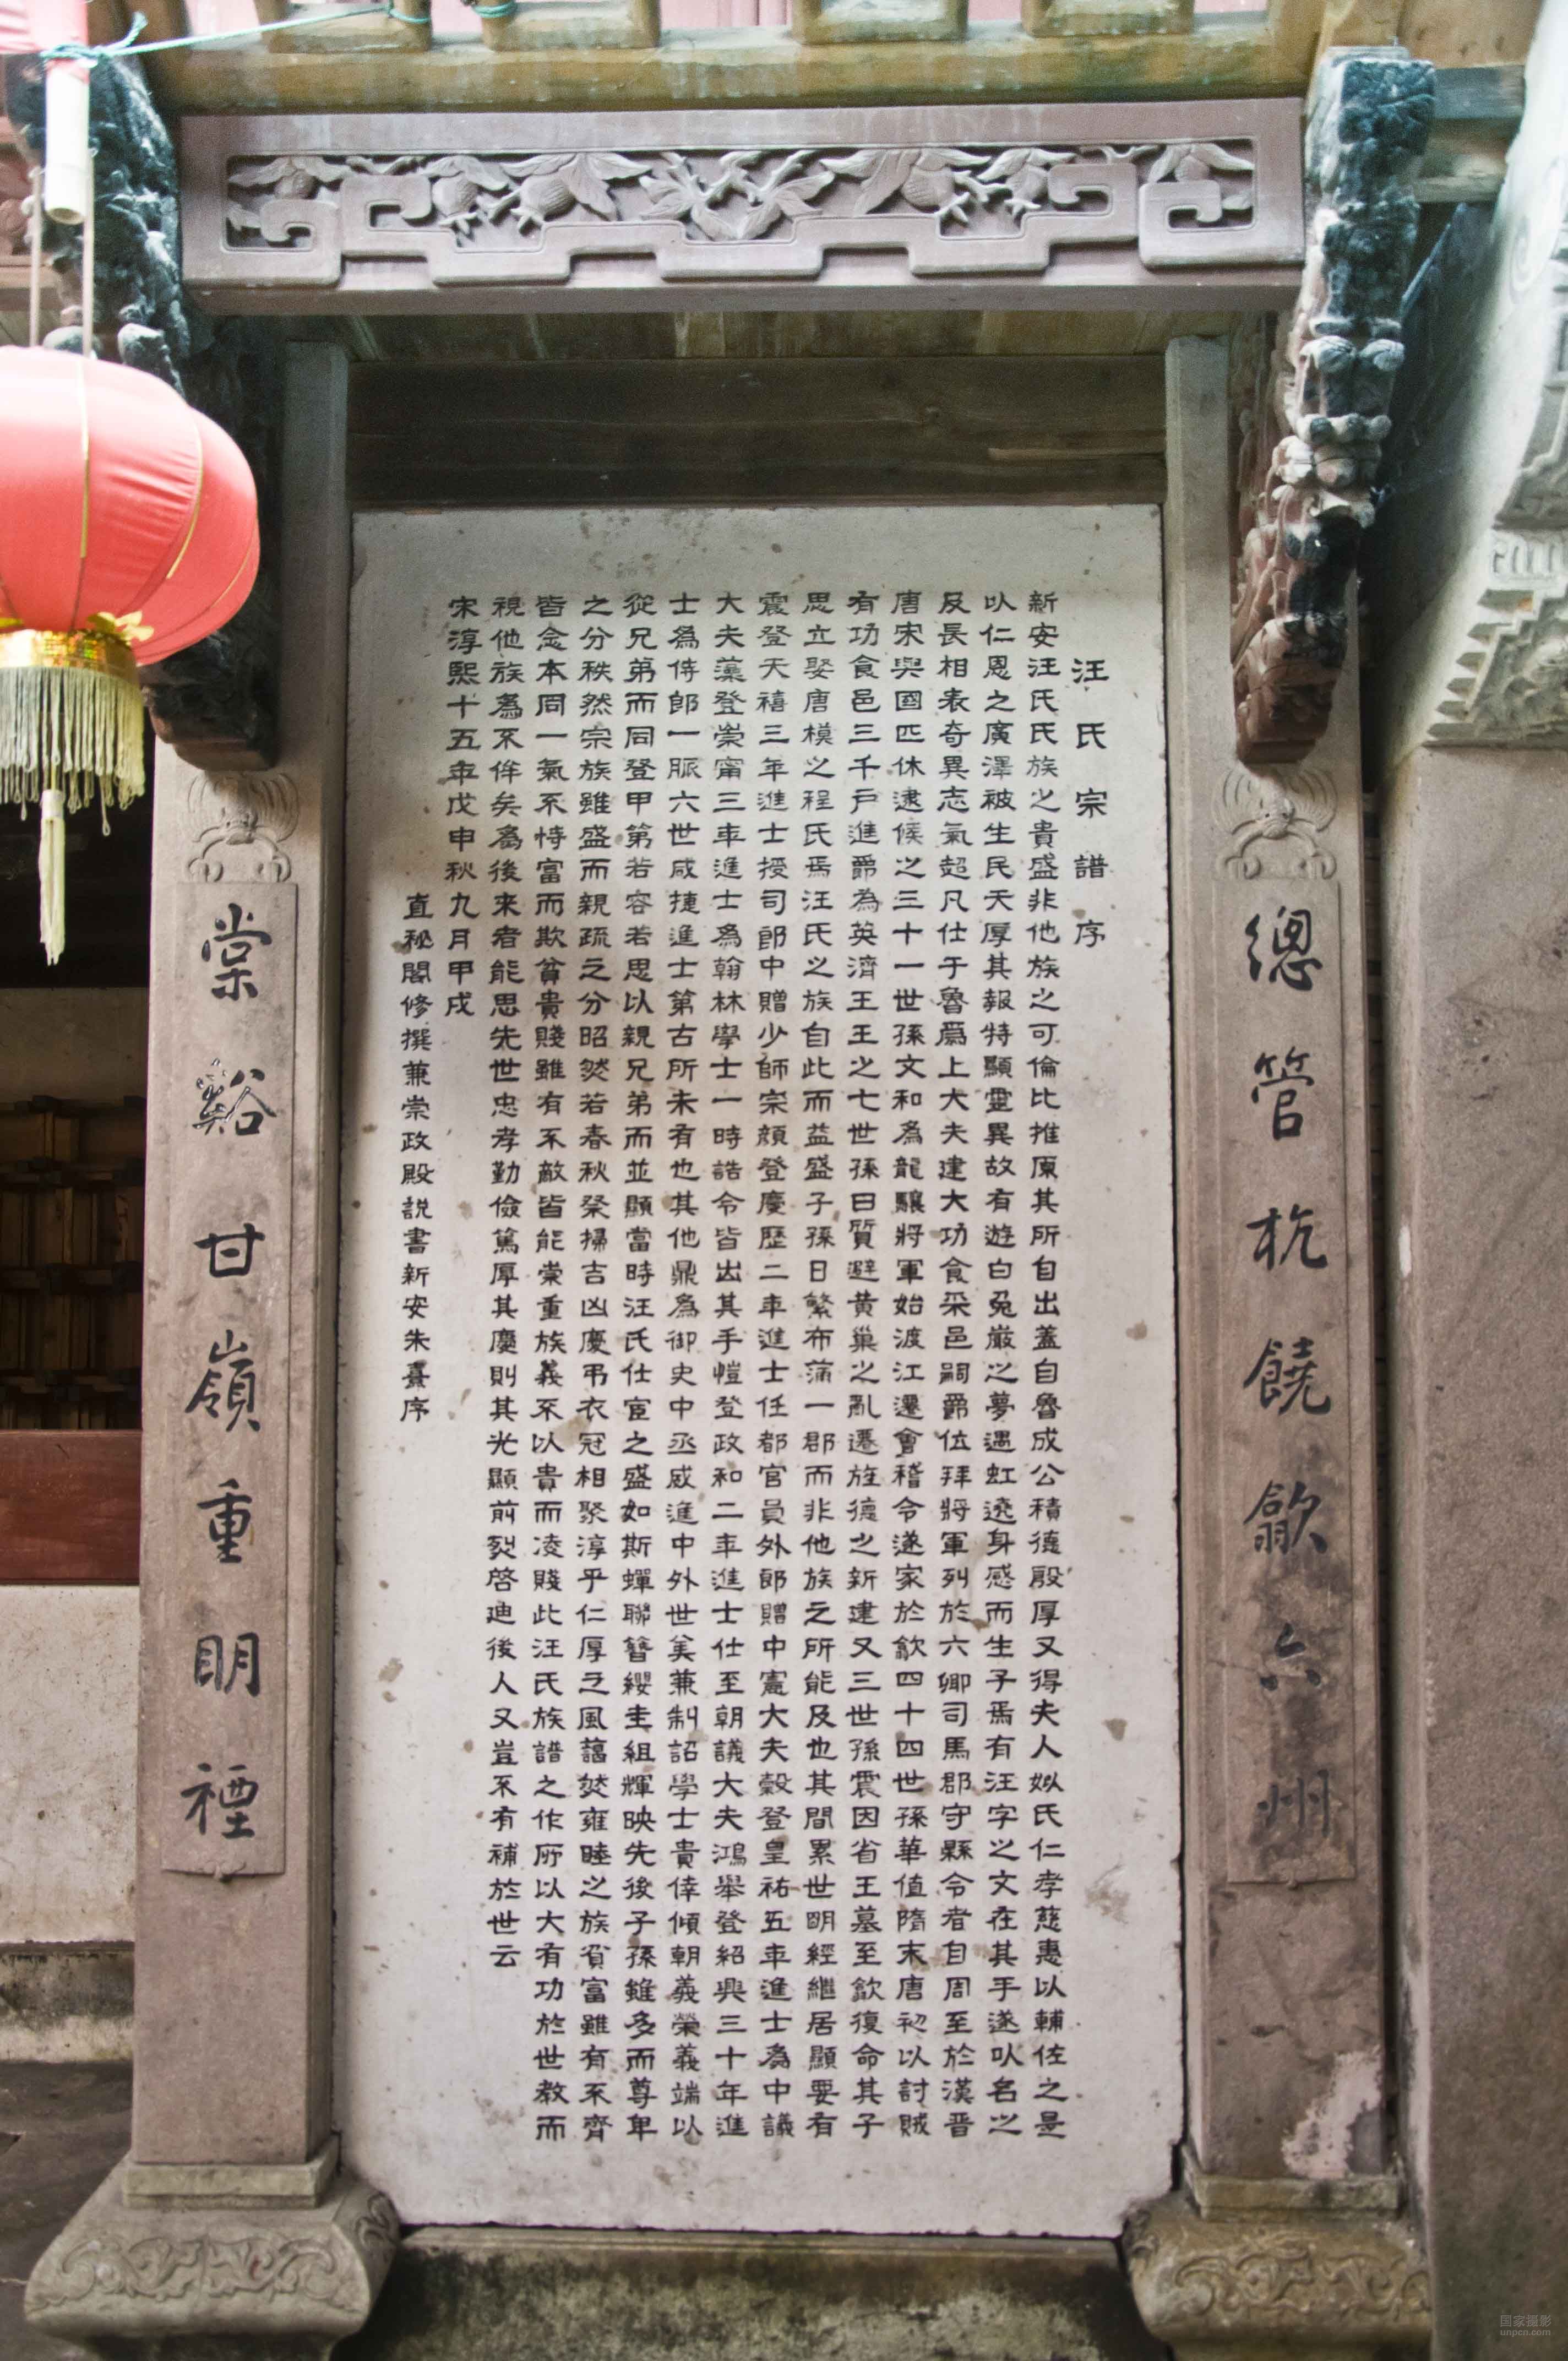 總管杭饒歙六州
汪氏宗譜序
新安汪氏氏族之貴盛非他族之可倫比推原其所自出蓋自魯成公積德殷厚又得夫人姒氏仁孝慈惠以輔佐之是
以仁恩之廣澤被生民天厚其報特顯靈異故有遊白兔巖之夢遇虹遶身感而生子焉有汪字之文在其手遂以名之
及長相表奇異志氣超凡仕于魯爲上大夫建大功食采邑嗣爵位拜將軍列於六卿司馬郡守縣令者自周至於漢晋
唐宋與國匹休逮候之三十一世孫文和為龍驤將軍始渡江遷會稽令遂家於歙四十四世孫華值隋末唐初以討賊
有功食邑三千戶進爵為英濟王王之七世孫曰質避黄巢之亂遷旌德之新建又三世孫震因省王墓至歙復命其子
思立娶唐模之程氏焉汪氏之族自此而益盛子孫日繁布蒲一郡而非他族之所能及也其間累世明經繼居顯要有
震登天禧三年進士授司郎中贈少師宗顔登慶歷二年進士任都官員外郎贈中憲大夫穀登皇祐五年進士為中議
大夫藻登崇甯三年進士為翰林學士一時誥令皆出其手愷登政和二年進士仕至朝議大夫鴻舉登紹興三十年進
士為侍郎一脈六世咸捷進士第古所未有也其他鼎為御史中丞咸進中外世美兼制詔學士貴倖傾朝義榮義端以
從兄弟而同登甲第若容若思以親兄弟而並顯當時汪氏仕宦之盛如斯蟬聯簪纓圭組輝映先後子孫雖多而尊卑
之分秩然宗族雖盛而親疏之分昭然若春秋祭掃吉凶慶弔衣冠相聚淳乎仁厚之風藹然雍睦之族貧富雖有不齊
皆念本同一氣不恃富而欺貧貴賤雖有不敵皆能崇重族義不以貴而凌賤此汪氏族譜之作所以大有功於世教而
視他族為不侔矣為後来者能思先世忠孝勤儉篤厚其慶則其光顯前烈啓迪後人又豈不有補於世云
宋淳熙十五年戊申秋九月甲戌
直秘閣修撰兼崇政殿説書新安朱熹序
棠谿甘嶺重明禋
国家摄影
unpcn.com